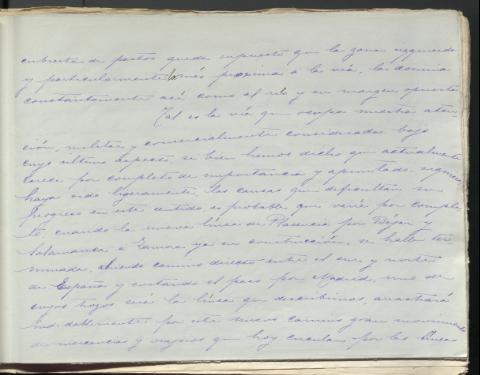 cubierta de pastos queda supuesto que la zona izquierda
y particularmente la más próxima á la via, la domina
constantemente así como al rio y su margen opuesta
Tal es la via que ocupa nuestra aten-
ción, militar y comercialmente considerada bajo
cuyo último aspecto, si bien hemos dicho que actualmente
carece por completo de importancia y apuntado, siquiera
haya sido ligeramente, las causas que dificultan su
progreso en este sentido, es probable que varie por comple-
to cuando la nueva linea de Plasencia por Béjar y
Salamanca a Zamora ya en construcción, se halle ter-
minada, abriendo camino directo entre el sur y norte
de España y evitando el paso por Madrid, uno de
cuyos trozos será la linea que describimos, arrastrará
indudablemente por este nuevo camino gran movimiento
de mercancias y viajeros que hoy circulan por las lineas